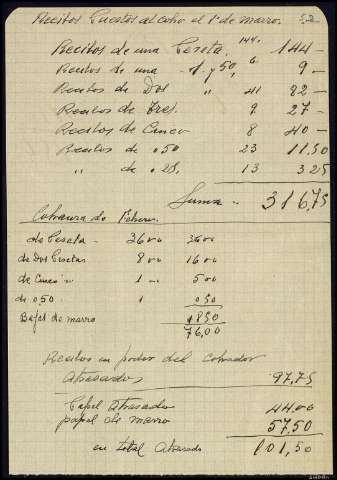 Recibos Puestos al cobro el 1º de marzo.
Recibos de una Peseta. 144. 144 —
Recibos de una - 1 y 50, 6 9 —
Recibos de Dos " 41 82 —
Recibos de Tres. 9 27 —
Recibos de Cinco 8 40 —
Recibos de 0,50 23 11,50
" de 0,25. 13 3 25
Suma .. 316,75
Cobranza de Febrero.
de Peseta - 36 00 36 00
de Dos Pesetas 8 00 16 00
de Cinco " 1 500
de 0,50. 1 0 50
Bajas de marzo 18 50
76,00
Recibos en poder del cobrador
atrasados 97,75
Papel atrasado 44 00
papel de marzo 57,50
en total atrasado 101,50